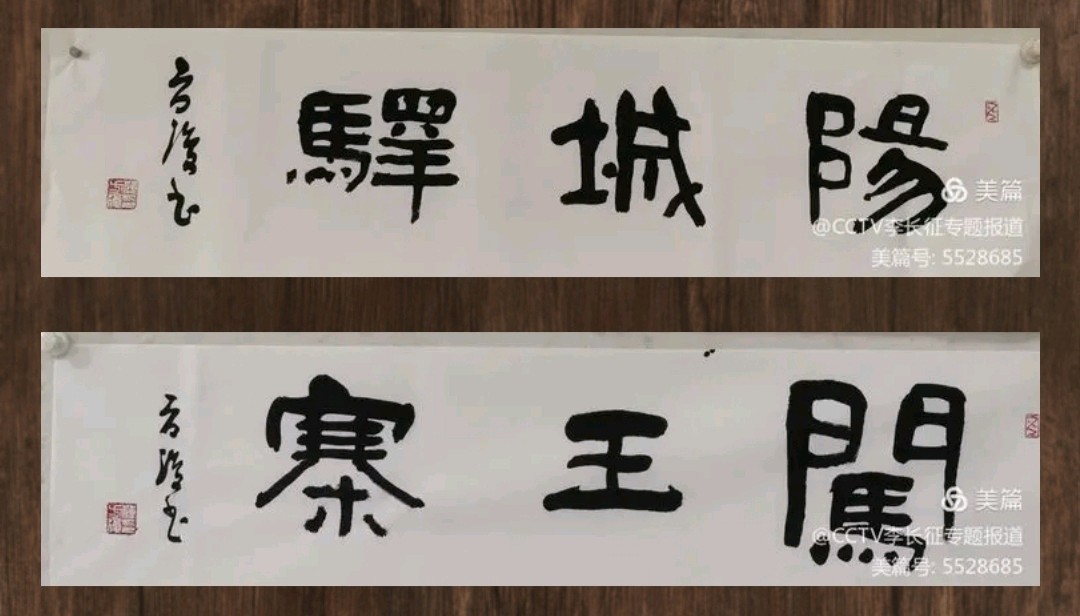 陽城驛
美篇
@CCTV李长征专题报道
美篇号: 5528685
闖王寨
美篇
@CCTV李长征专题报道
美篇号: 5528685